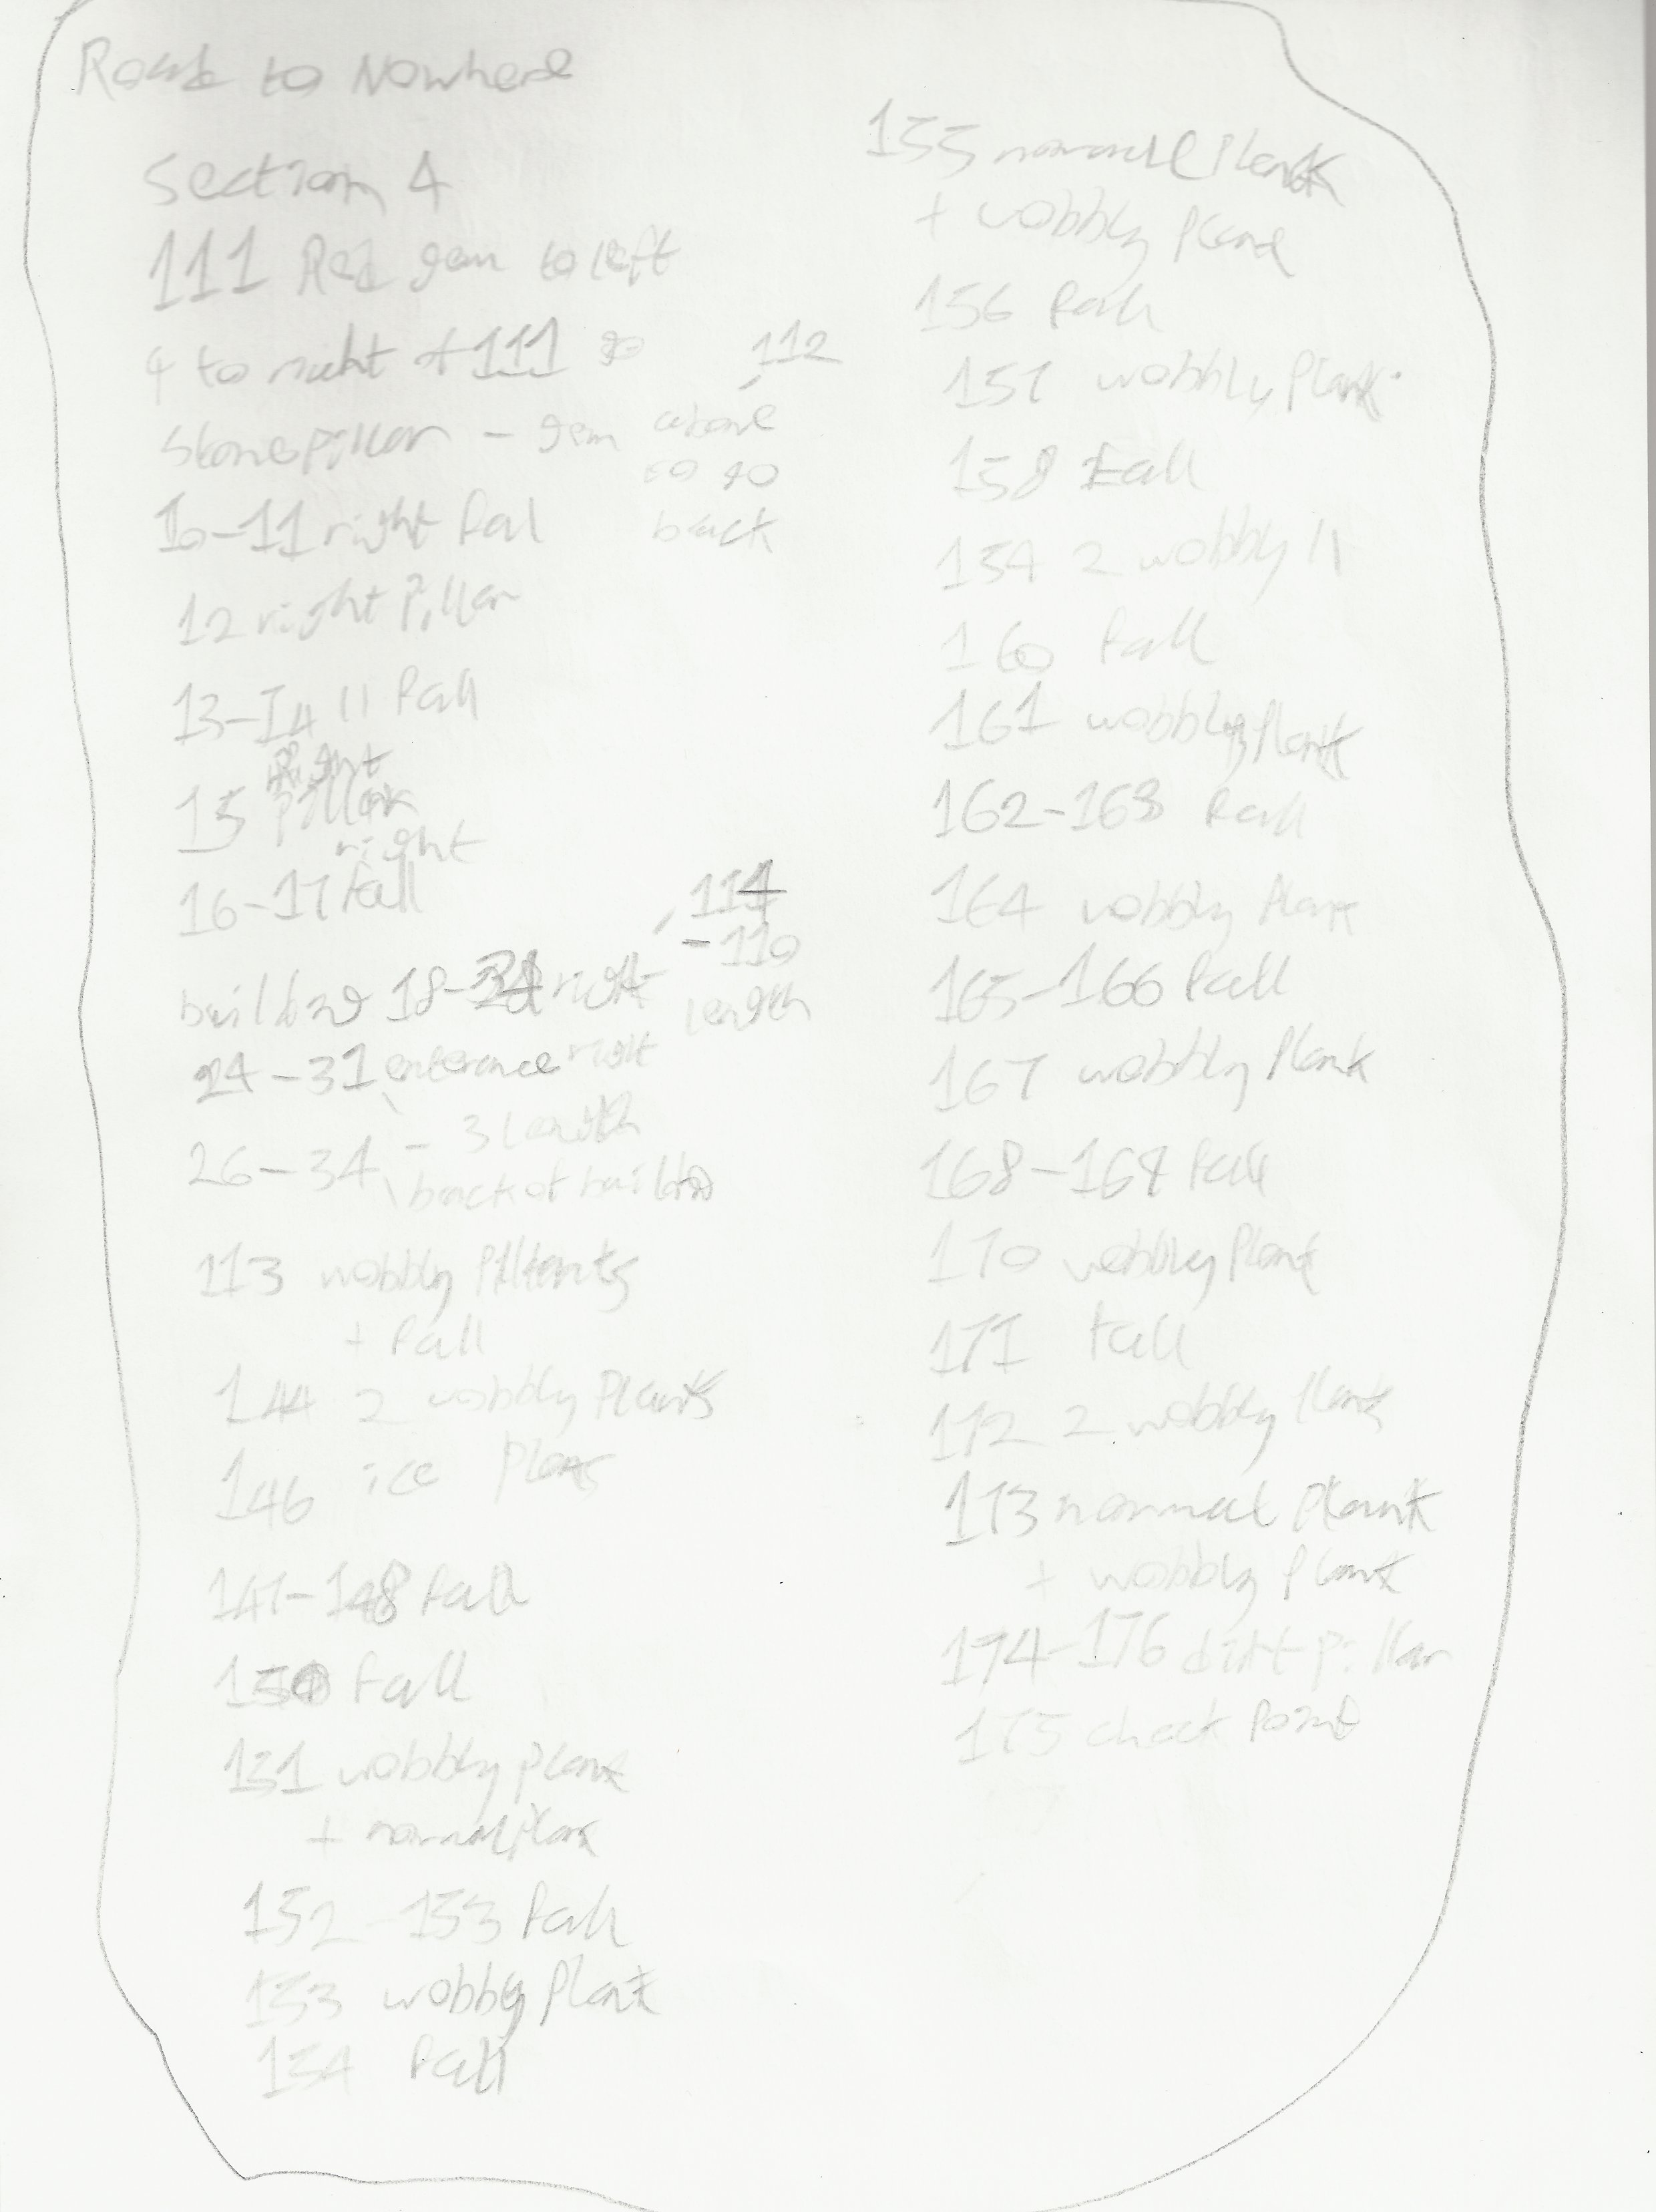 Road to Nowhere
Section 4
111 Red gem to left
4 to right of 111 go
112
stone pillar - gem above
so go
back
10-11 right fal
12 right Pillar
13-14 11 fall
right
15 pillar
right
16-17 fall
114
-110
length
building 18- right
24-31 enterance right
- 3 length
26-34 back of building
113 wobbly
+ fall
144 2 wobbly Planks
146 ice
147-148 fall
150 fall
151 wobbly plank
+ normal plank
152-153 fall
153 wobbly Plank
154 fall
155 normal Plank
+ wobbly Plank
156 fall
157 wobbly Plank
158 Fall
159 2 wobbly 11
160 fall
161 wobbly Plank
162-163 fall
164 wobbly Plank
165-166 fall
167 wobbly Plank
168-169 fall
170 wobbly Plank
171 fall
172 2 wobbly Plank
173 normal Plank
+ wobbly Plank
174-176 dirt pillar
175 check Point